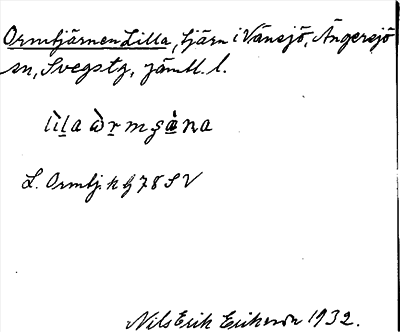 Ormtjärnen Lilla, tjärn i Vänsjö, Ängersjö
sn, Svegs tg, Jämtl. l.
lìl̠a òr̠mʂàna
L. Ormtj. k bj 78 SV
Nils Erik Erikson 1932.